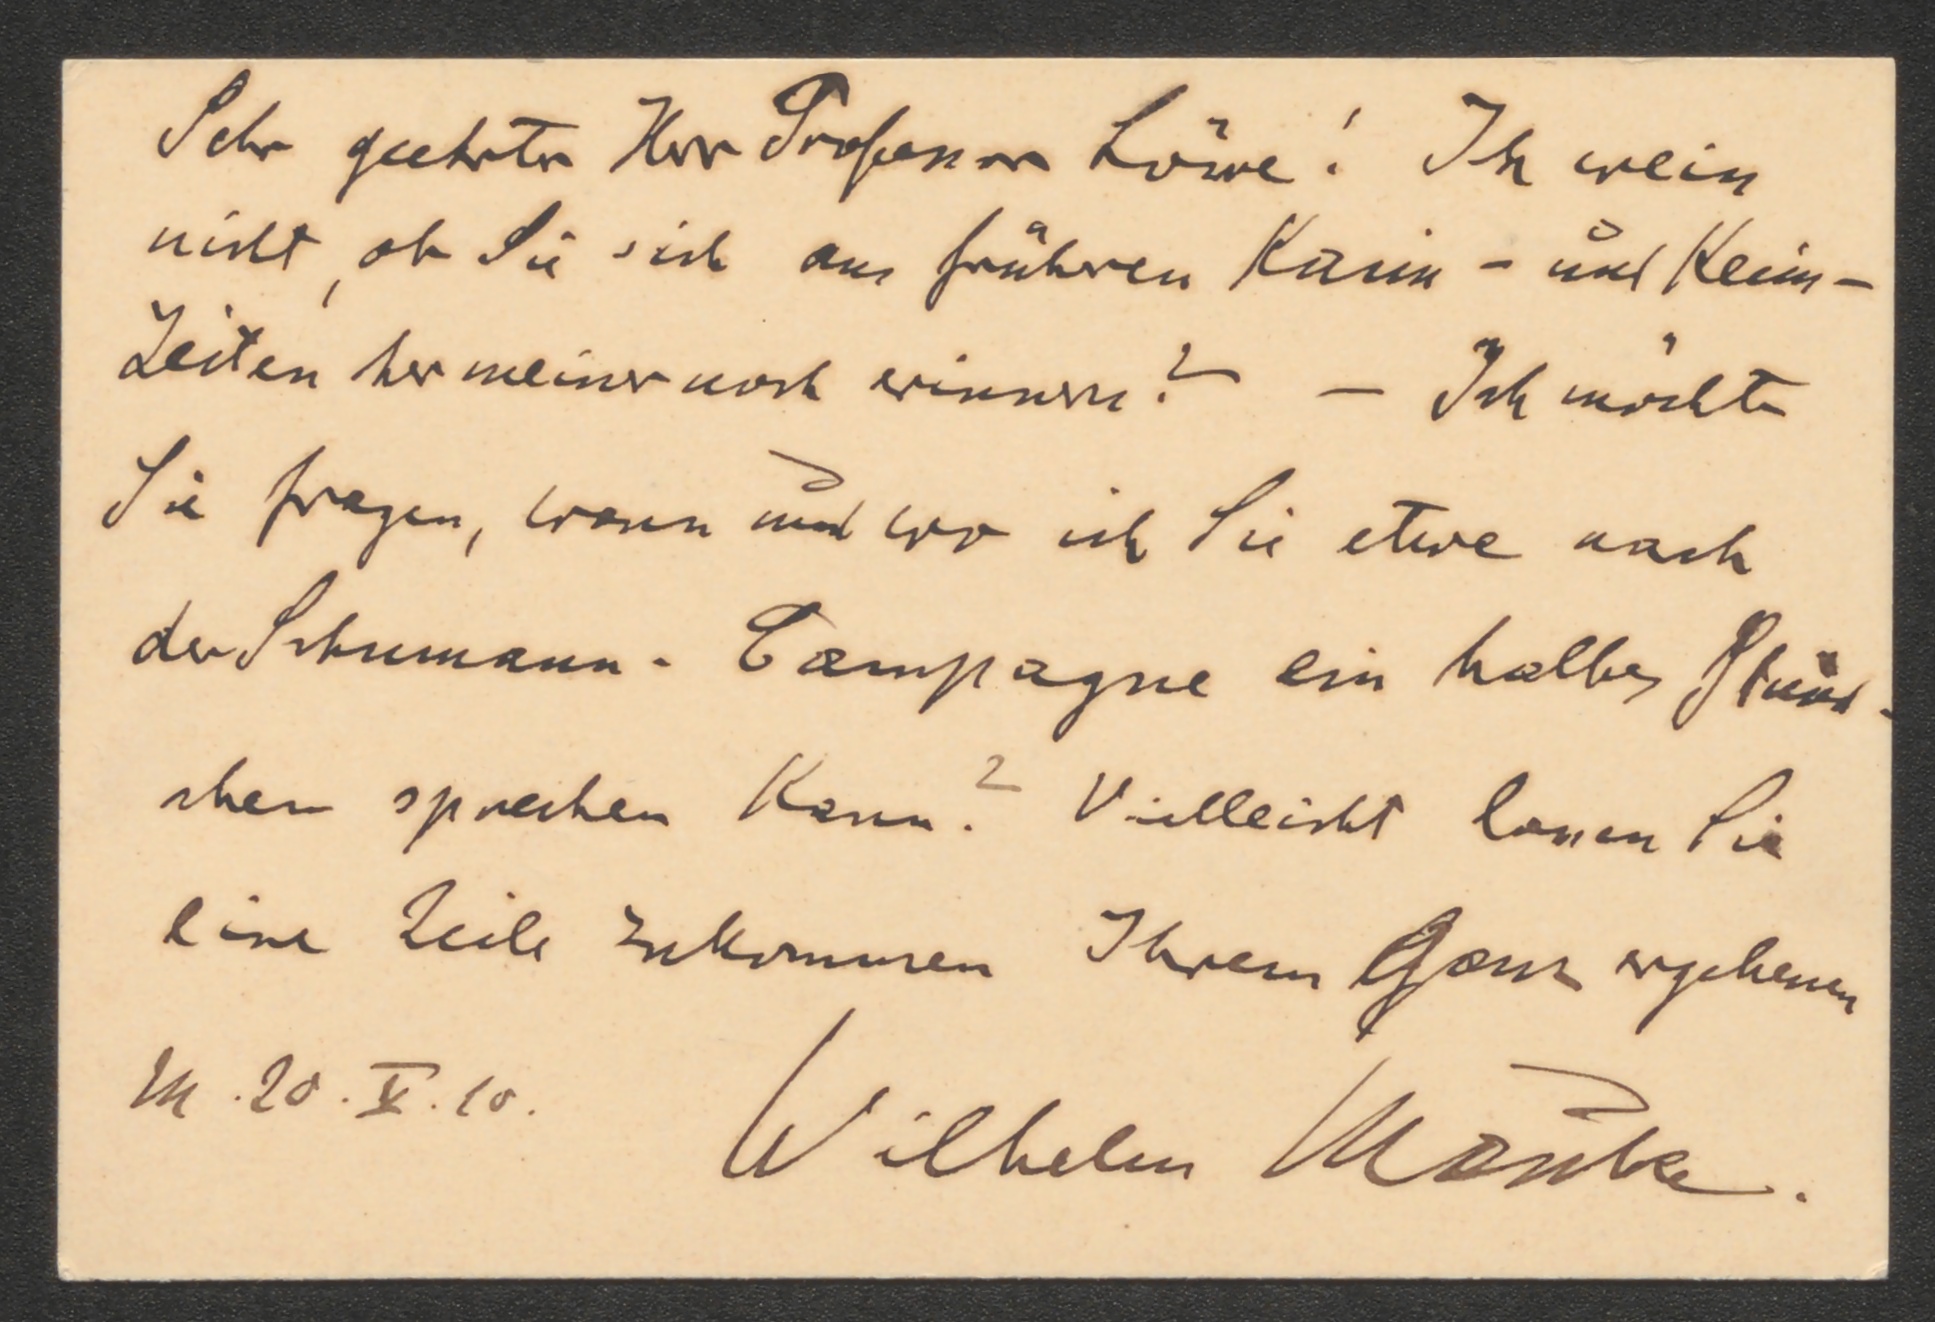 Sehr geehrter Herr Professor Löwe! Ich weiss
nicht, ob Sie sich aus früheren Kaim- und Keim-
Zeiten her meiner noch erinnern? – Ich möchte
Sie fragen, wann und wo ich Sie etwa nach
der Schumann-Campagne ein halbes Stünd-
chen sprechen kann? Vielleicht lassen Sie
eine Zeile zukommen Ihrem Ganz ergebenen
M. 20. V. 10. Wilhelm Mauke.